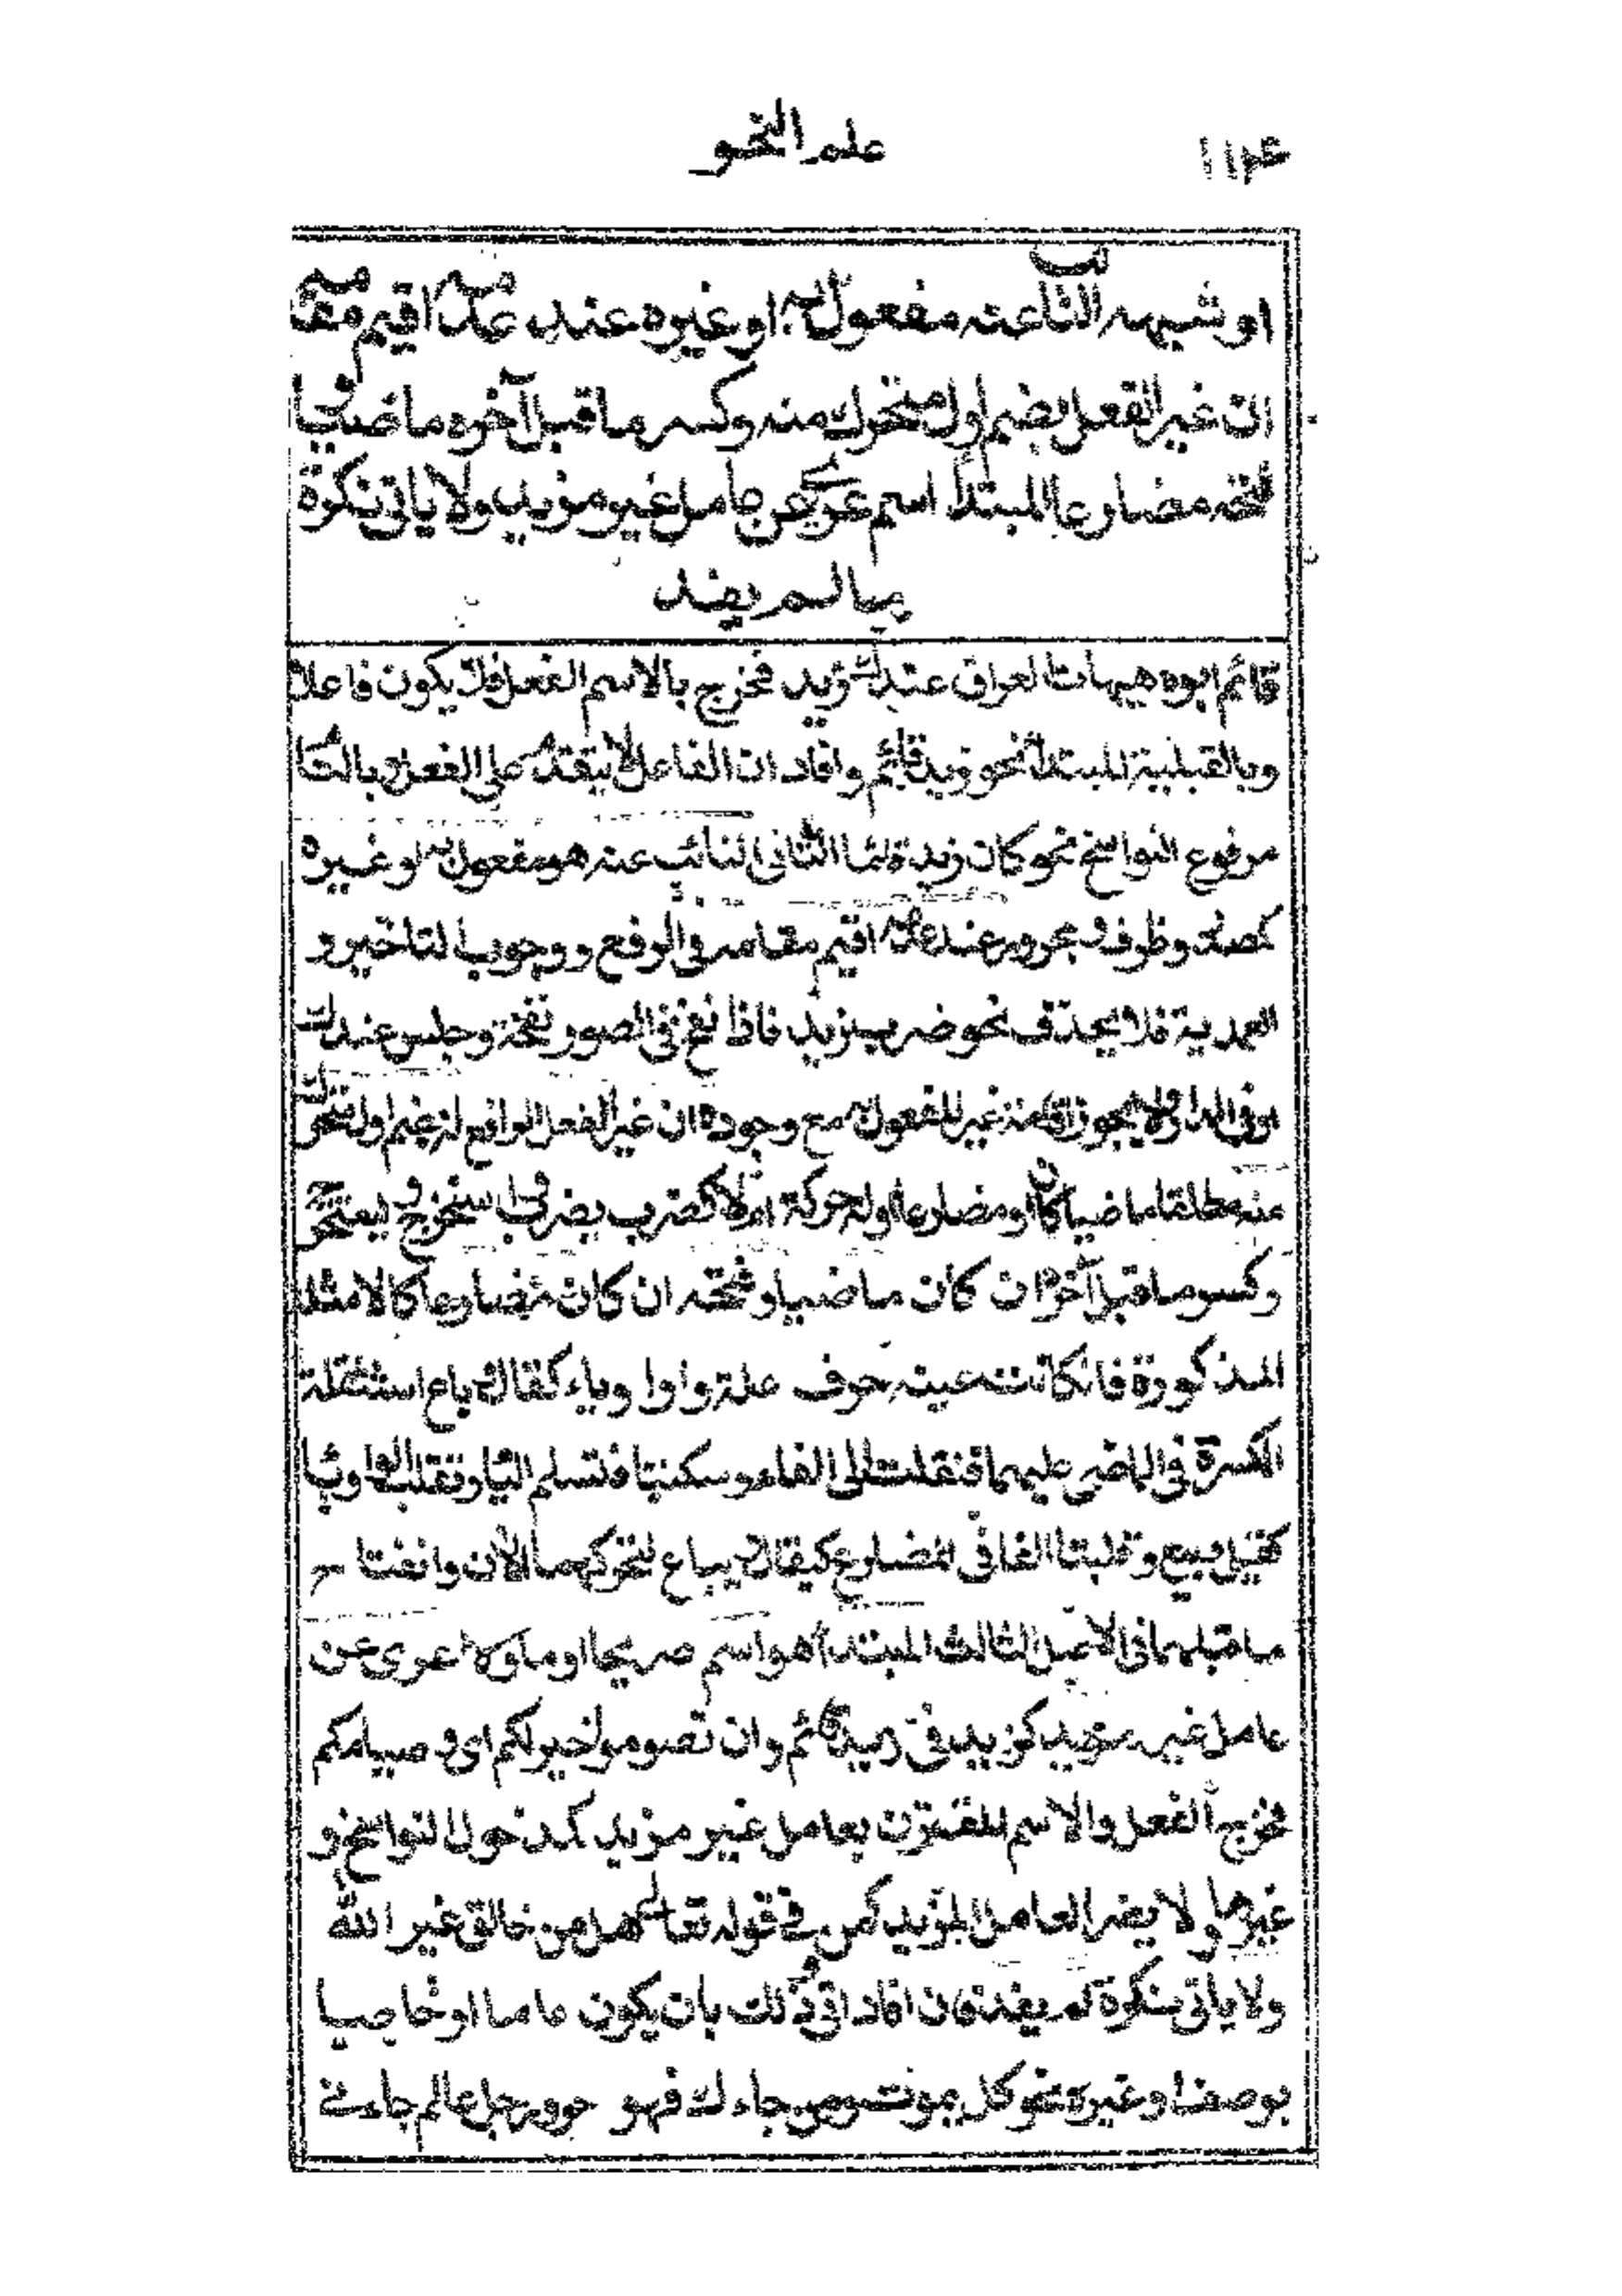 علم النحو
١١٤
او شبهه النائب عنه مفعول به او غيره عند عدمه اقيم مقامه
ان غير الفعل بضم اول متحرك منه وكسر ما قبل آخره ماضيا
فتحه مضارعا المبتدأ اسم عرى عن عامل غير مزيد ولا ياتى نكرة
ما لم يفد
قائم ابوه هيهات العراق عندك زيد فخرج بالاسم الفعل فلا يكون فاعلا
وبالقبلية المبتدأ نحو زيد قائم وافاد ان الفاعل لا يتقدم على الفعل و بالتام
مرفوع النواسخ نحو كان زيد قائما الثانى النائب عنه هو مفعول به او غيره
كمصدر وظرف و مجرور عند عدمه اقيم مقامه فى الرفع ووجوب التاخير و
العمدية فلا يحذف نحو ضرب زيد فاذا نفخ فى الصور نفخة وجلس عندك
وفى الدار ولا يجوز اقامة غير المفعول به مع وجوده ان غير الفعل الرافع له بضم اول متحرك
منه مطلقا ماضيا كان او مضارعا اوله حركة اولا كضرب يضرب استخرج و يستخرج
وكسر ما قبل آخره ان كان ماضيا وفتحه ان كان مضارعا كالامثلة
المذكورة فان كانت عينه حرف علة واوا وياء كقال و باع استثقلت
الكسرة فى الماضى عليهما فنقلت الى الفاء وسكنتا فتسلم الياء وتقلب الواو ياء
كقيل و بيع وقلبتا الفا فى المضارع كيقال و يباع لتحركهما الآن وانفتاح
ما قبلهما فى الاصل الثالث المبتدأ هو اسم صريحا او ماولا عرى عن
عامل غير مزيد كزيد فى زيد قائم وان تصوموا خير لكم اى و صيامكم
فخرج الفعل والاسم المقترن بعامل غير مزيد كمدخول النواسخ و
غيرها ولا يضر العامل المزيد كمن فى قوله تعالى هل من خالق غير الله
ولا ياتى نكرة لم يفد فان افاد اتى و ذلك بان يكون عاما او خاصا
بوصف او غيره نحو كل يموت ومن جاءك فهو حر ورجل عالم جاءنى